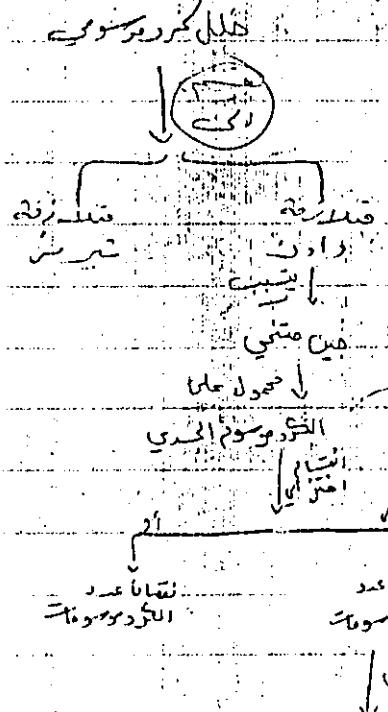 خلل كروموسومي
ينقسم
إلى
متلازمة
داون
متلازمة
يسبب
جين متنحي
محمول على
الكروموسوم الجسدي
انقسام
اختزالي
أو
نقصان عدد
الكروموسومات
عدد